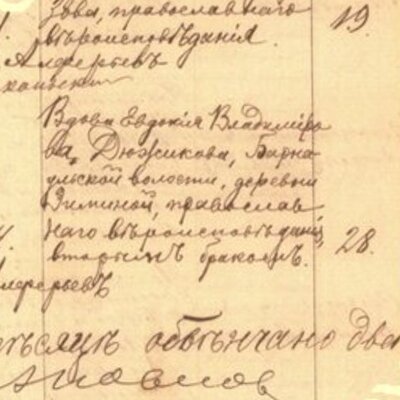 това, православнаго 19.
вѣроисповѣданія.
Алферьевъ
Вдова Евдокія Владиміро
ва, Дюжикова, Барна
ульской волости, деревни
Зиминой, православ
наго вѣроисповѣданія, 28.
вторымъ бракомъ.
лферьевъ
мѣсяцѣ обвѣнчано две